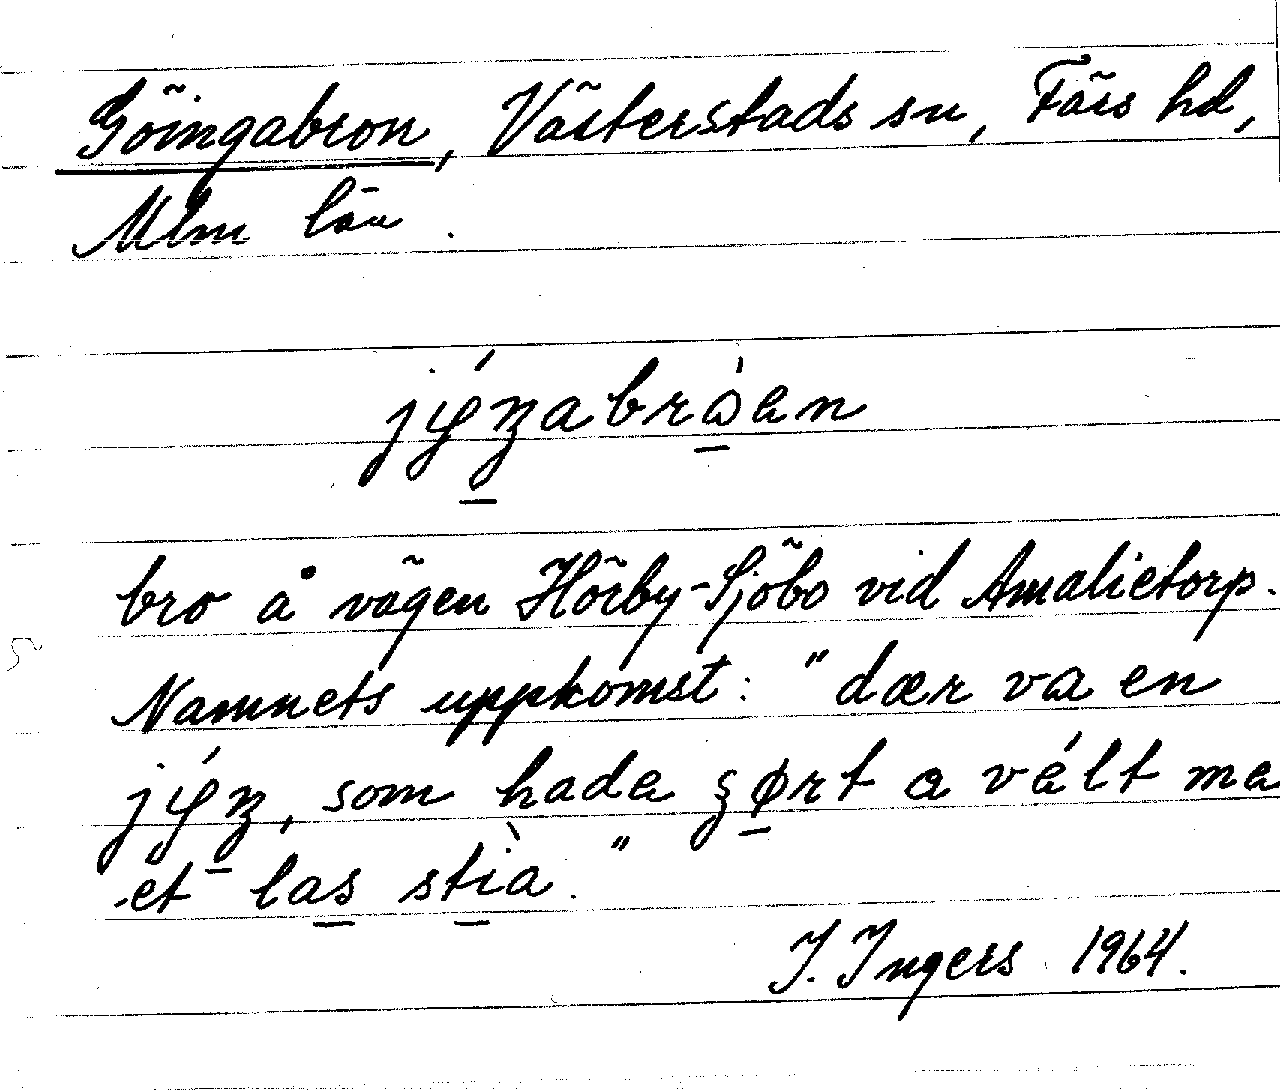 Göingabron, Västerstads sn, Färs hd,
Mlm län.
jýŋabròen
bro å vägen Hörby-Sjöbo vid Amalietorp.
Namnets uppkomst: "dær va en
jýŋ, som hade ʒørt a vélt me
et las stìa."
I. Ingers 1964.